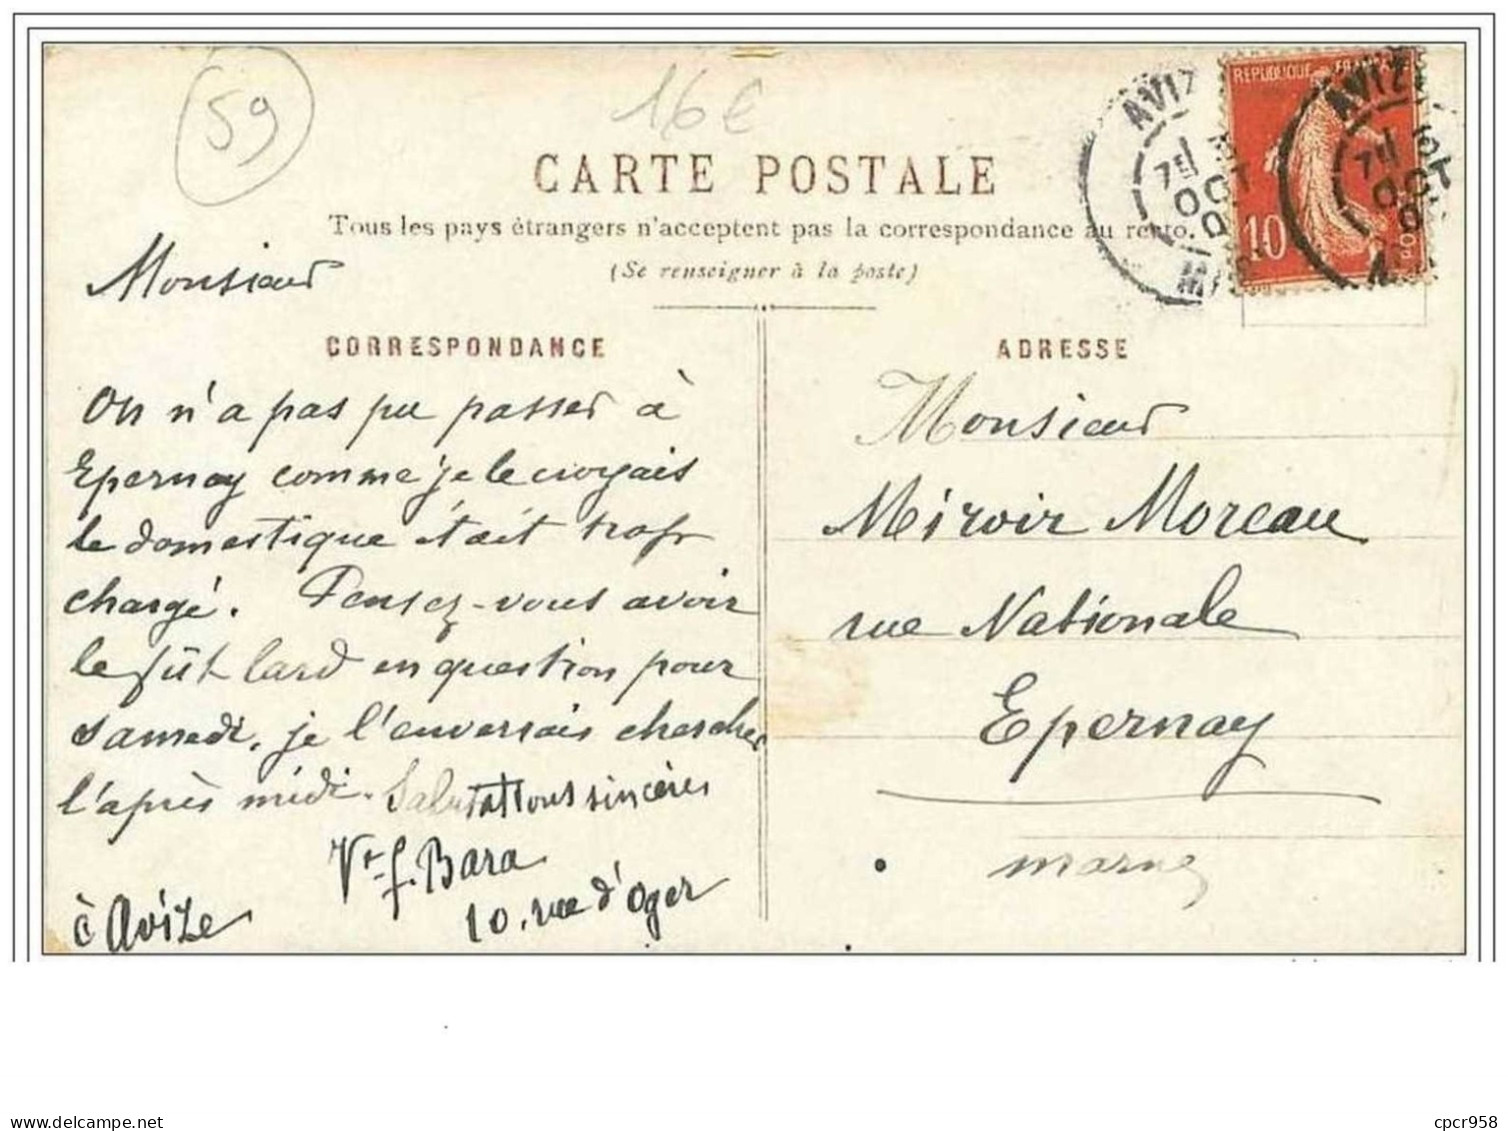 59
16€
CARTE POSTALE
Tous les pays étrangers n'acceptent pas la correspondance au recto.
(Se renseigner à la poste)
REPUBLIQUE FRANÇAISE
10
POSTES
AVIZ
7E
OCT
0
AVIZ
7E
OCT
0
Monsieur
CORRESPONDANCE
On n'a pas pu passer à
Epernay comme je le croyais
le domestique était trop
chargé. Pensez-vous avoir
le fût lard en question pour
samedi, je l'enverrais chercher
l'après midi. Salutations sincères
Vr. f. Bara
10, rue d'Oger
à Avize
ADRESSE
Monsieur
Miroir Moreau
rue Nationale
Epernay
marne
www.delcampe.net
cpcr958